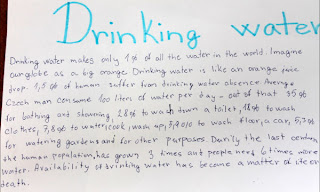 Drinking water
Drinking water makes only 1% of all the water in the world. Imagine
our globe as a big orange Drinking water is like an orange juice
drop. 1,5% of human suffer from drinking water absence Average
Czech man consume 100 liters of water per day - out of that 35%
for bathing and showning, 28% to wash down a toilet, 18% to wash
clothes, 7,8% to water, cook, wash up, 3,9% to wash floor, a car, 5,2%
for watering gardens and for other purposes. During the last century
the human population has grown 3 times and people need 6 times more
water. Availability of drinking water has become a matter of life or
death.